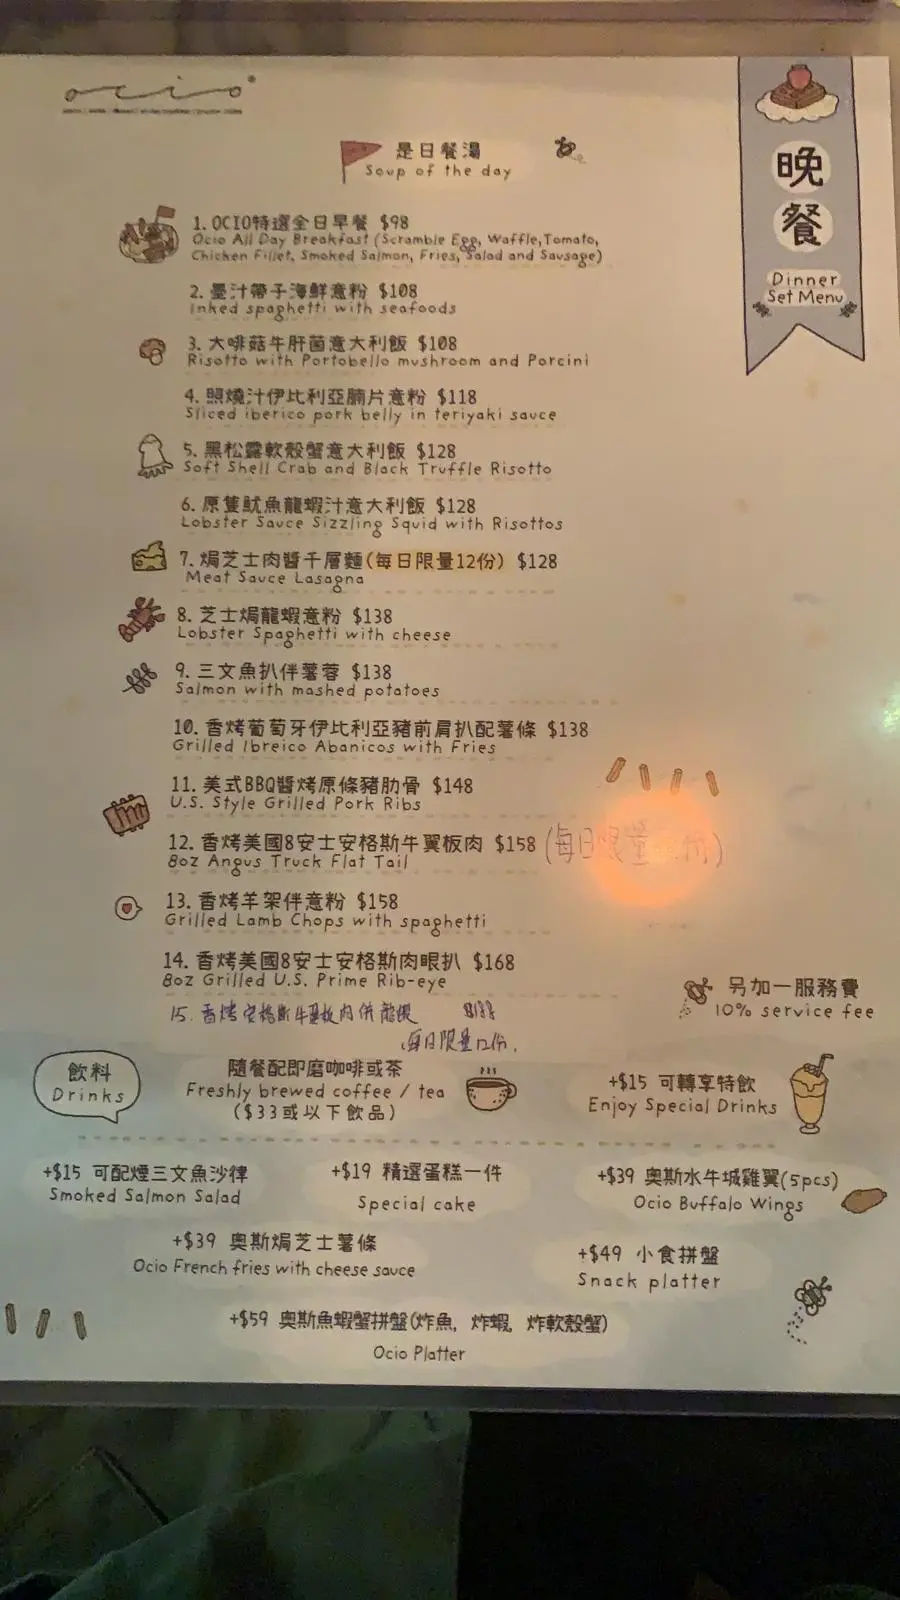 ocio
是日餐湯
Soup of the day
晚餐
Dinner
Set Menu
1. OCIO特選全日早餐 $98
Ocio All Day Breakfast (Scramble Egg, Waffle,Tomato,
Chicken Fillet, Smoked Salmon, Fries, Salad and Sausage)
2. 墨汁帶子海鮮意粉 $108
Inked spaghetti with seafoods
3. 大啡菇牛肝菌意大利飯 $108
Risotto with Portobello mushroom and Porcini
4. 照燒汁伊比利亞腩片意粉 $118
Sliced iberico pork belly in teriyaki sauce
5. 黑松露軟殼蟹意大利飯 $128
Soft Shell Crab and Black Truffle Risotto
6. 原隻魷魚龍蝦汁意大利飯 $128
Lobster Sauce Sizzling Squid with Risottos
7. 焗芝士肉醬千層麵(每日限量12份) $128
Meat Sauce Lasagna
8. 芝士焗龍蝦意粉 $138
Lobster Spaghetti with cheese
9. 三文魚扒伴薯蓉 $138
Salmon with mashed potatoes
10. 香烤葡萄牙伊比利亞豬前肩扒配薯條 $138
Grilled Ibreico Abanicos with Fries
11. 美式BBQ醬烤原條豬肋骨 $148
U.S. Style Grilled Pork Ribs
12. 香烤美國8安士安格斯牛翼板肉 $158 (每日限量 份)
8oz Angus Truck Flat Tail
13. 香烤羊架伴意粉 $158
Grilled Lamb Chops with spaghetti
14. 香烤美國8安士安格斯肉眼扒 $168
8oz Grilled U.S. Prime Rib-eye
15. 香烤安格斯牛翼板肉併龍蝦 $188
(每日限量12份)
另加一服務費
10% service fee
飲料
Drinks
隨餐配即磨咖啡或茶
Freshly brewed coffee / tea
($33或以下飲品)
+$15 可轉享特飲
Enjoy Special Drinks
+$15 可配煙三文魚沙律
Smoked Salmon Salad
+$19 精選蛋糕一件
Special cake
+$39 奧斯水牛城雞翼(5pcs)
Ocio Buffalo Wings
+$39 奧斯焗芝士薯條
Ocio French fries with cheese sauce
+$49 小食拼盤
Snack platter
+$59 奧斯魚蝦蟹拼盤(炸魚, 炸蝦, 炸軟殼蟹)
Ocio Platter